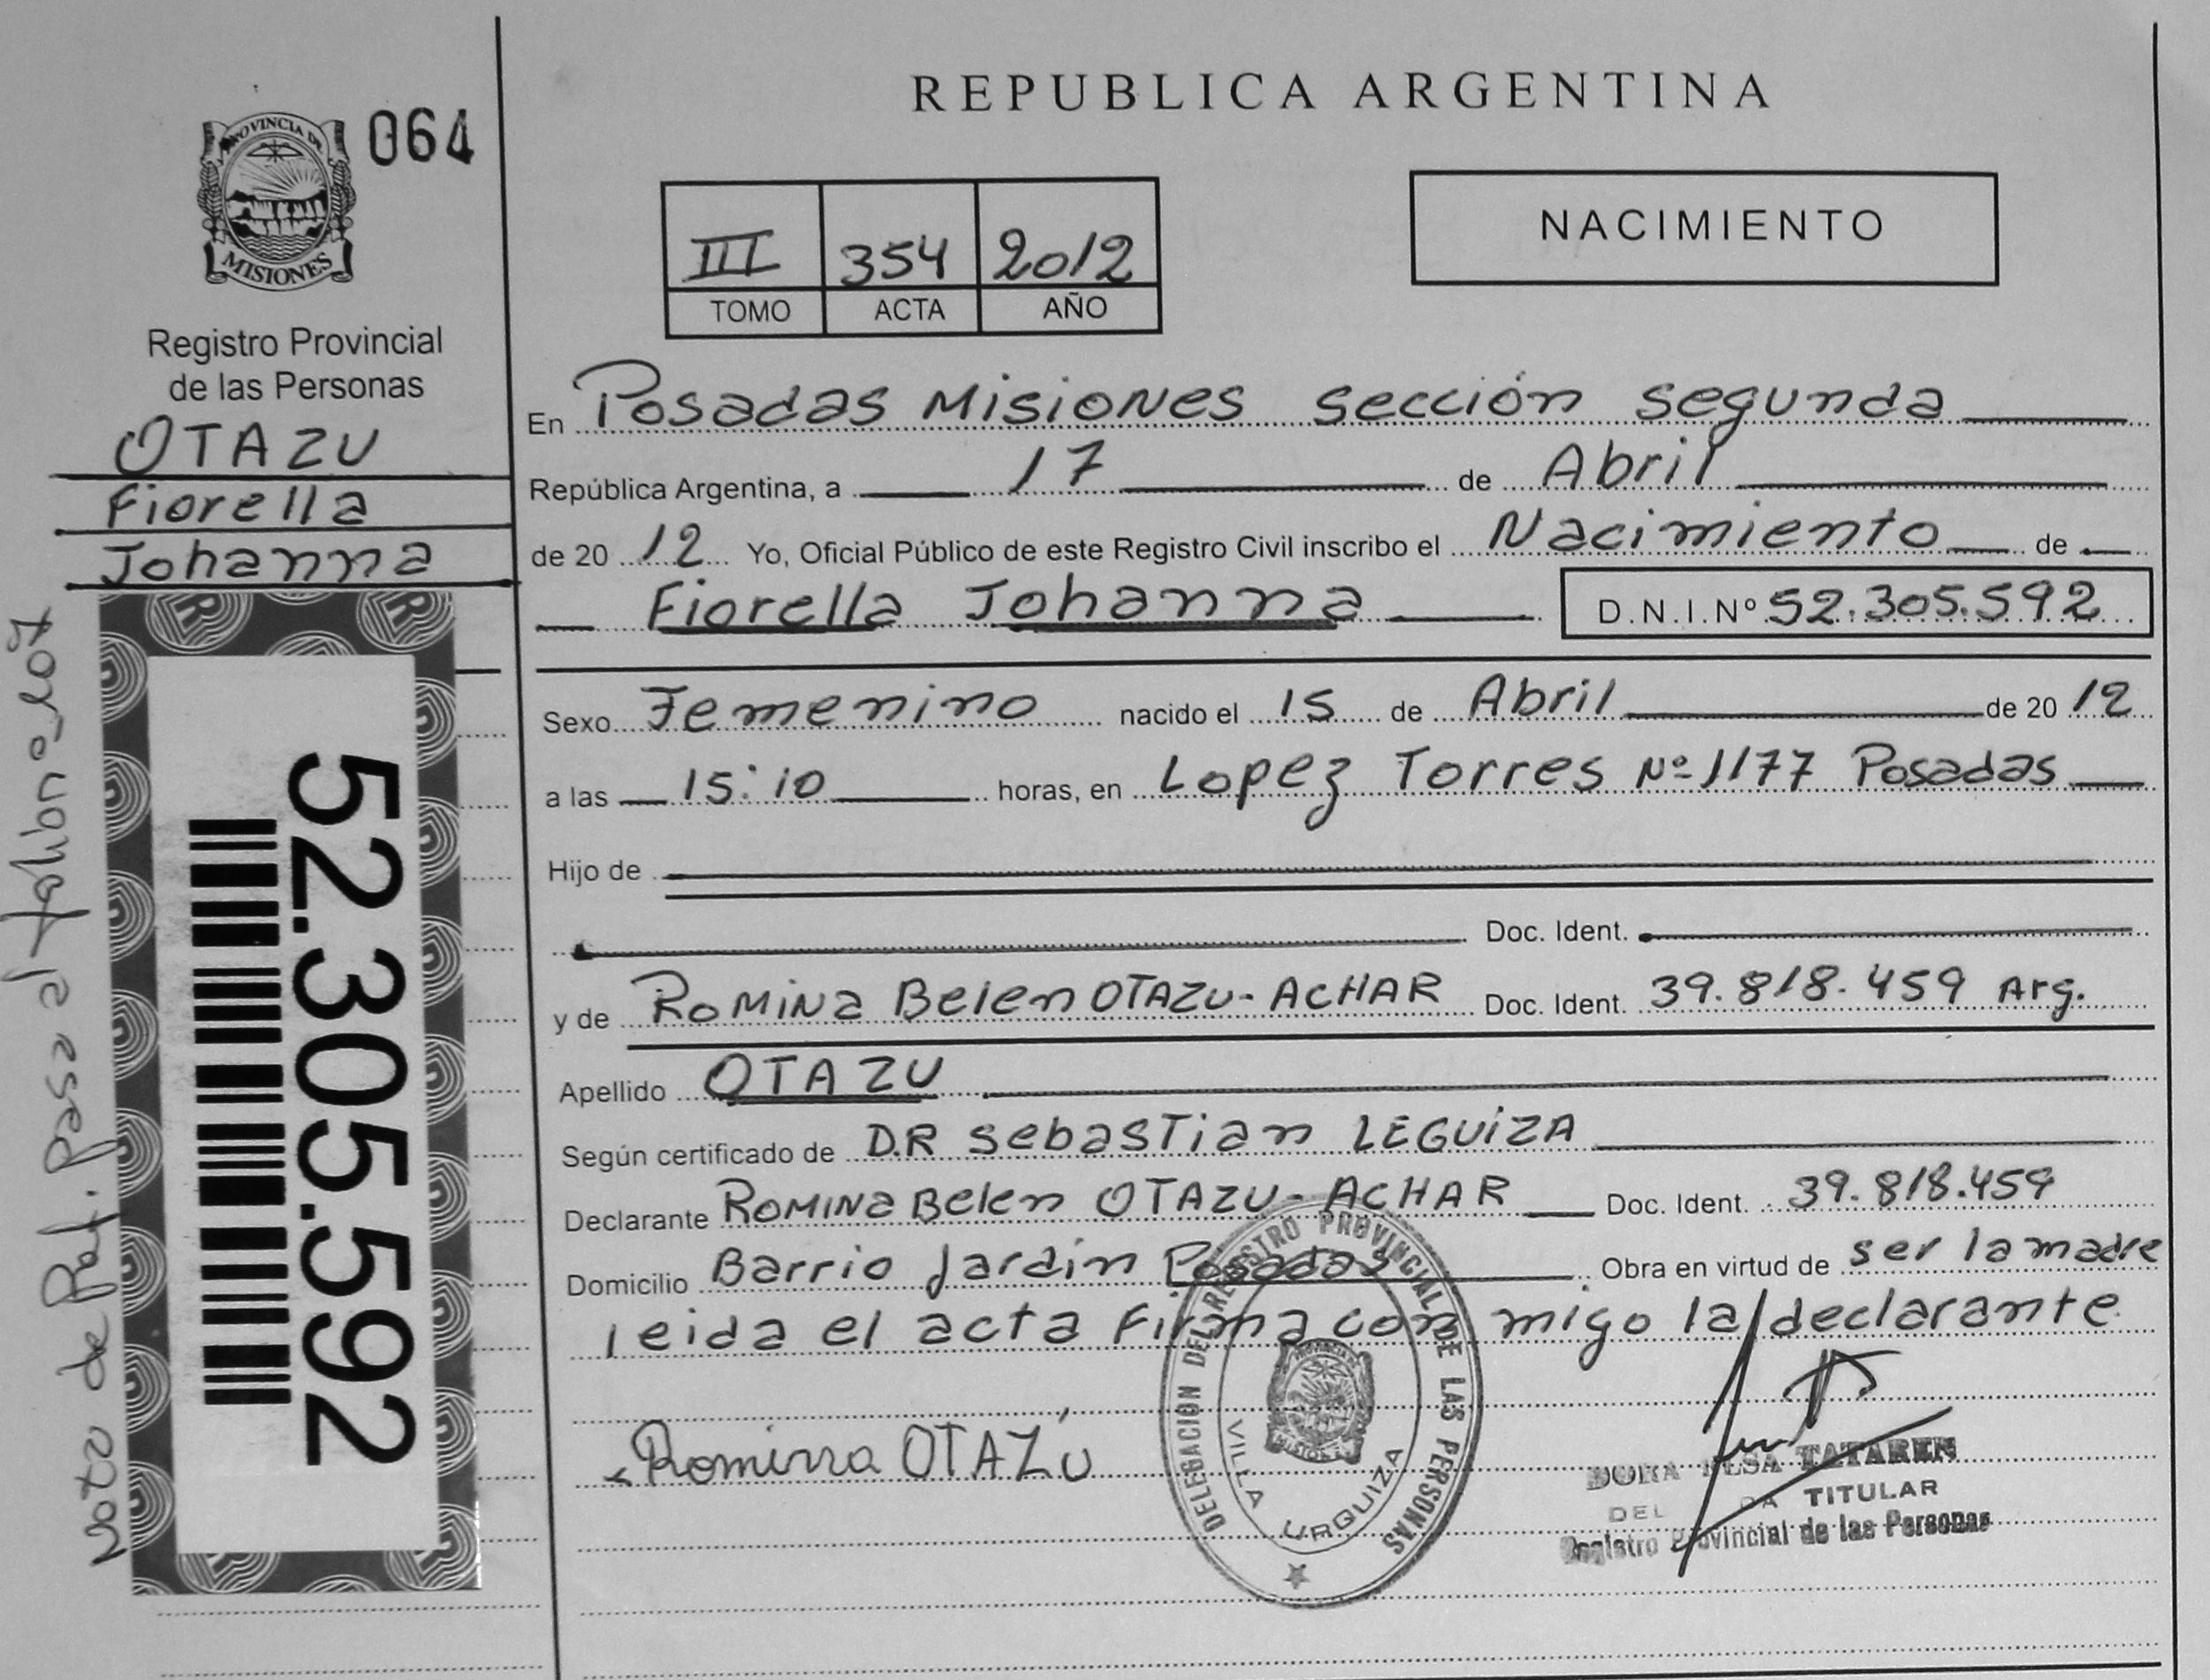 PROVINCIA DE
MISIONES
064
Registro Provincial
de las Personas
OTAZU
Fiorella
Johanna
52.305.592
Nota de Pat. Pasa al folio nº
REPUBLICA ARGENTINA
III 354 2012
TOMO ACTA AÑO
NACIMIENTO
En Posadas Misiones sección segunda
República Argentina, a 17 de Abril
de 20 12 Yo, Oficial Público de este Registro Civil inscribo el Nacimiento de
Fiorella Johanna D.N.I.Nº 52.305.592
Sexo Femenino nacido el 15 de Abril de 20 12
a las 15:10 horas, en Lopez Torres Nº 1177 Posadas
Hijo de
Doc. Ident.
y de Romina Belen OTAZU-ACHAR Doc. Ident. 39.818.459 Arg.
Apellido OTAZU
Según certificado de D.R Sebastian LEGUIZA
Declarante Romina Belen OTAZU-ACHAR Doc. Ident. 39.818.459
Domicilio Barrio Jardin Posadas Obra en virtud de ser la madre
leida el acta firma con migo la declarante
Romina OTAZÚ
DELEGACION DEL REGISTRO PROVINCIAL DE LAS PERSONAS
VILLA URQUIZA
MISIONES
TATAREN
TITULAR
Registro Provincial de las Personas